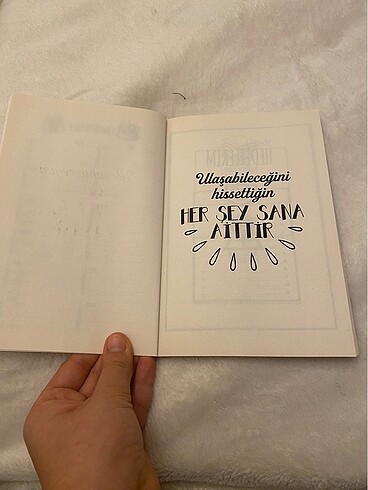 Ulaşabileceğini
hissettiğin
HER ŞEY SANA
AİTTİR
HEDEFLERİM